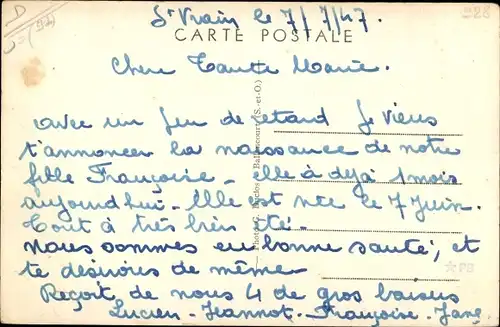 St Vrain le 7/7/47.
CARTE POSTALE
Chere Tante Marie.
avec un peu de retard Je viens
t'annoncer la naissance de notre
fille Françoise - elle à dejà 1 mois
aujourdhui - Elle est née le 7 Juin.
Tout à très bien été.
Nous sommes en bonne santé, et
te désirons de même -
Reçoit de nous 4 de gros baisers
Lucien - Jeannot - Françoise -
Photo Ballancourt (S.-et-O.)